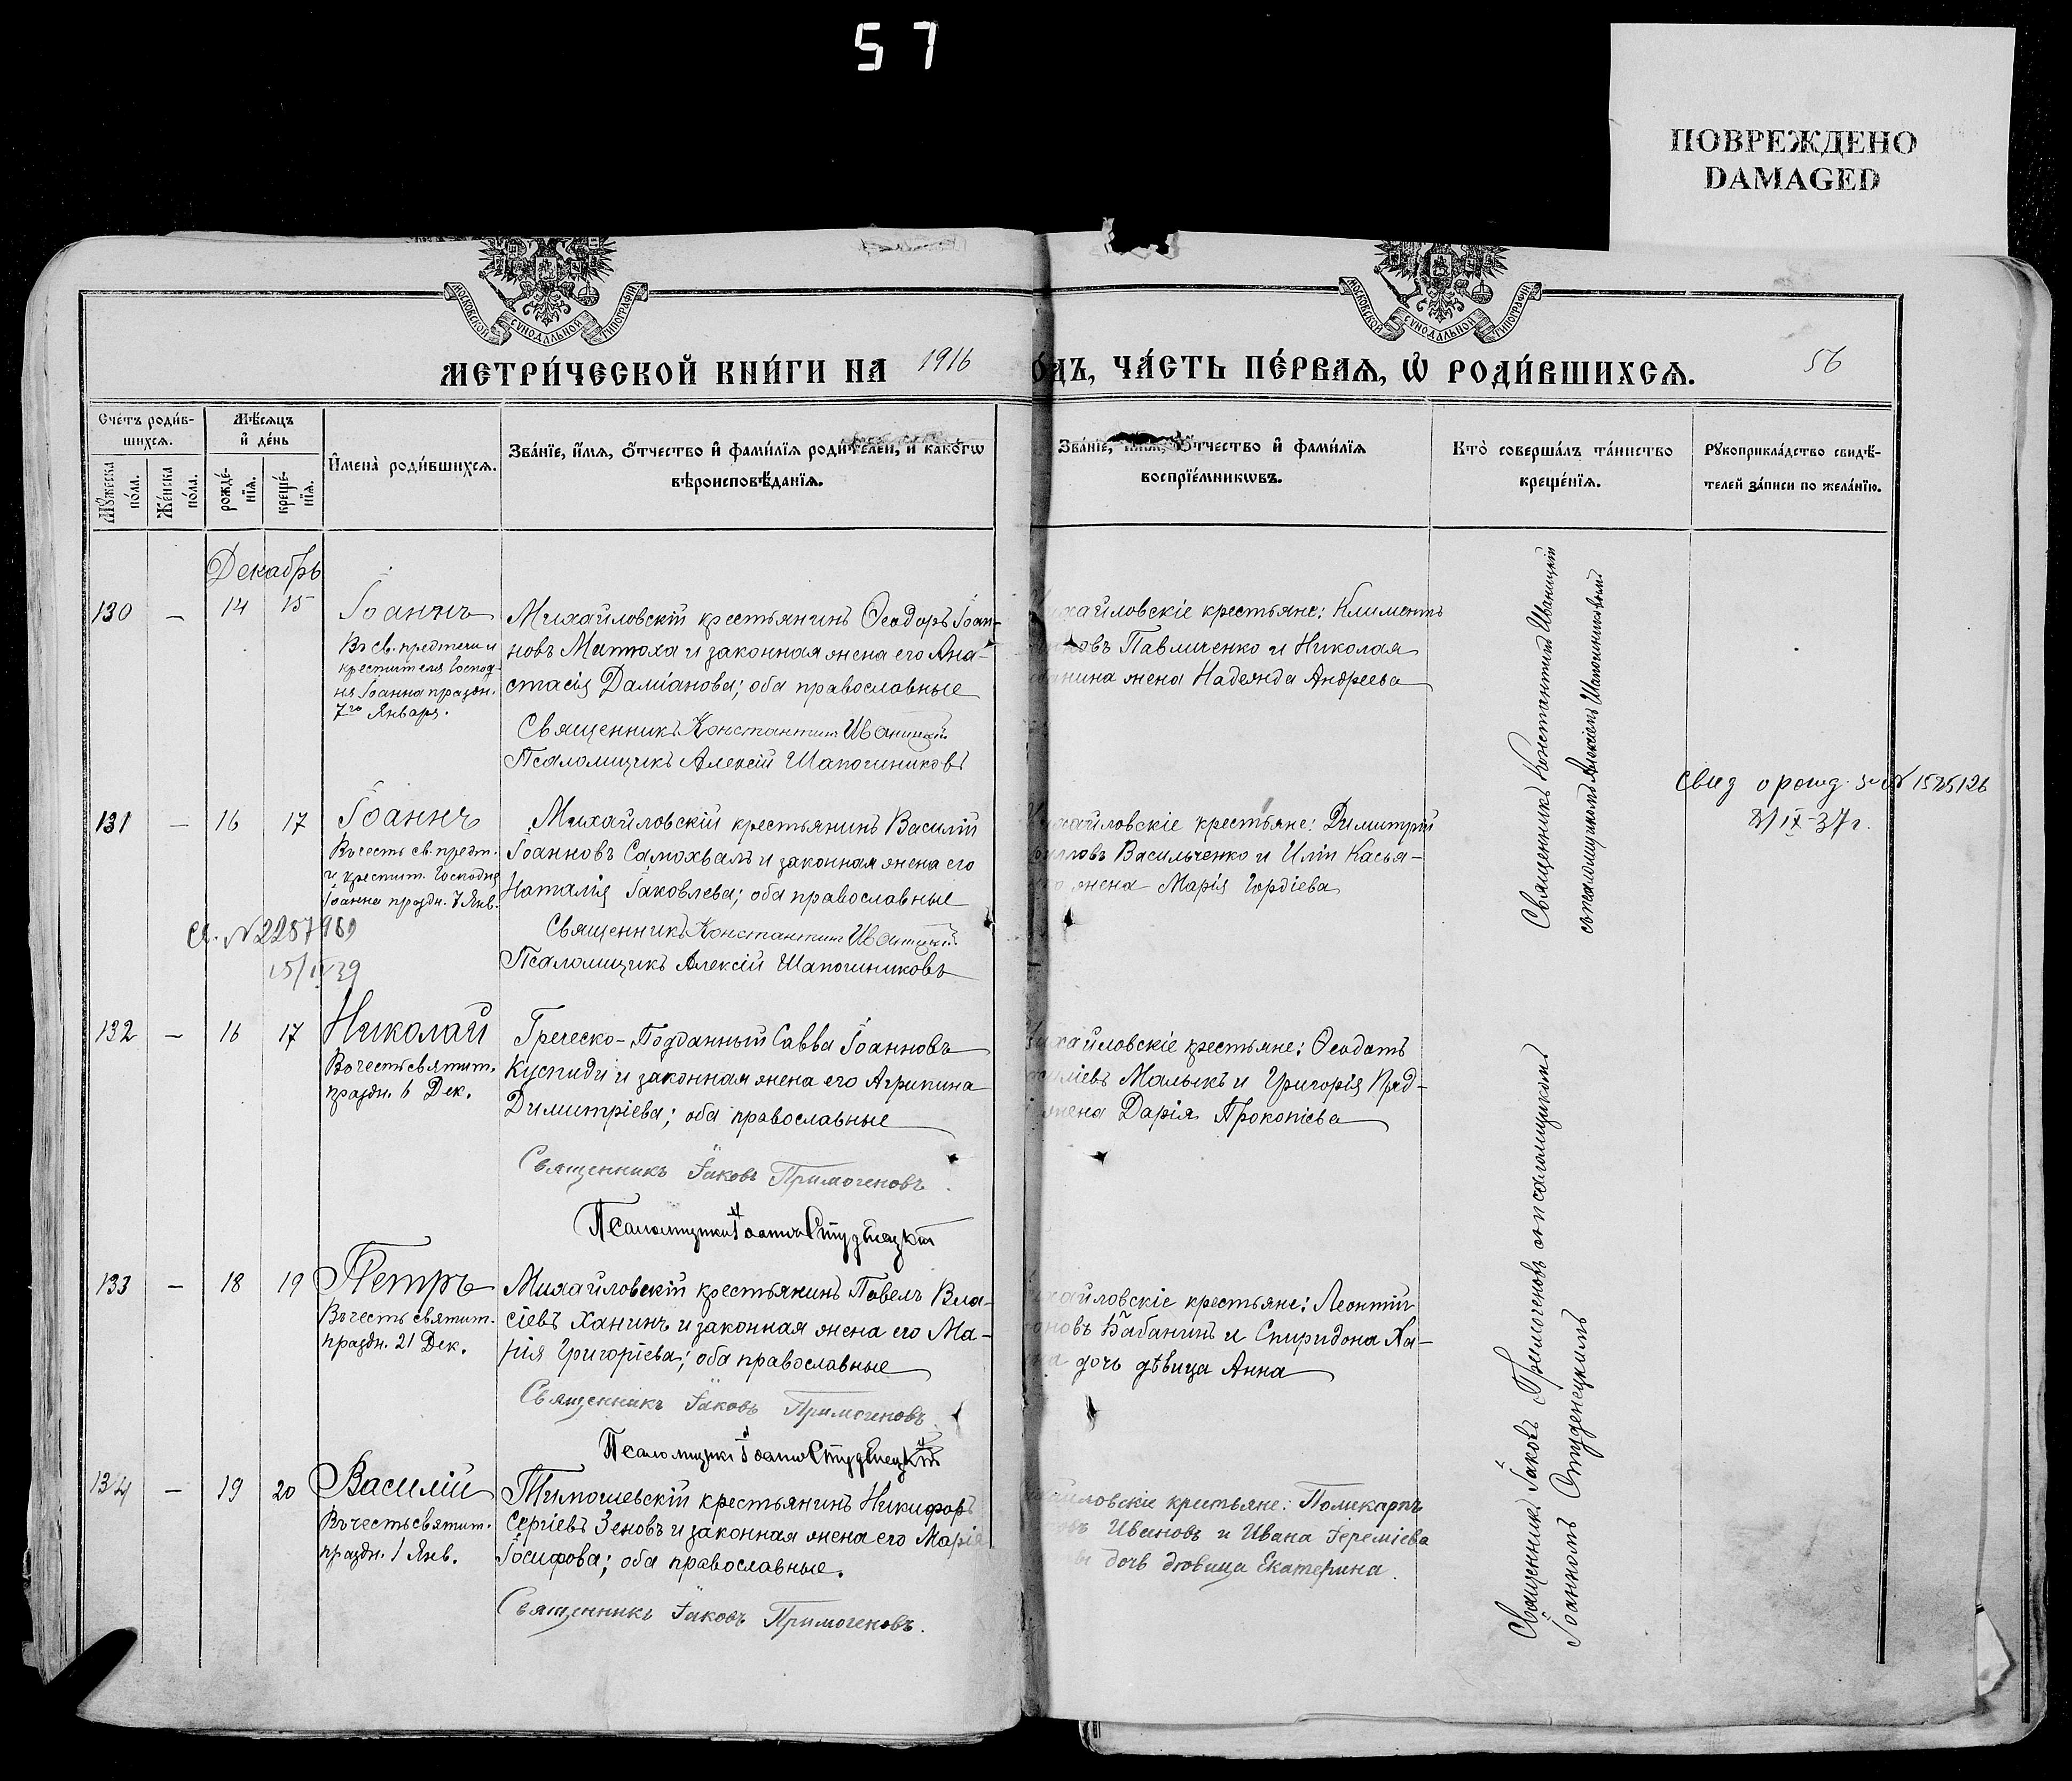 57
ПОВРЕЖДЕНО
DAMAGED
МОСКОВСКОЙ СѴНОДАЛЬНОЙ ТИПОГРАФІИ
МОСКОВСКОЙ СѴНОДАЛЬНОЙ ТИПОГРАФІИ
МЕТРИ́ЧЕСКОЙ КНИ́ГИ НА 1916
ОДЪ, ЧА́СТЬ ПЕ́РВАѦ, Ѿ РОДИ́ВШИХСѦ.
56
Сче́тъ роди́в-
шихсѧ.
Мꙋ́жеска по́ла.
Же́нска по́ла.
Мѣ́сѧцъ
и҆ де́нь
рожде́-
нїѧ.
креще́-
нїѧ.
И҆мена̀ роди́вшихсѧ.
Зва́нїе, и҆́мѧ, ѻ҆́тчество и҆ фами́лїѧ роди́телей, и҆ како́гѡ
вѣроисповѣ́данїѧ.
Зва́нїе, и҆́мѧ, ѻ҆́тчество и҆ фами́лїѧ
воспрїе́мникѡвъ.
Кто̀ соверша́лъ та́инство
креще́нїѧ.
Рꙋкоприкла́дство свидѣ́-
телей за́писи по жела́нїю.
Декабрь
130 — 14 15 Іоаннъ
Въ св. предтечи и
крестителя Господ-
ня Іоанна праздн.
7го Января.
Михайловскій крестьянинъ Ѳеодоръ Іоан-
новъ Матюха и законная жена его Ана-
стасія Даміанова; оба православные
Священникъ Константинъ Иваницкій
Псаломщикъ Алексій Шапошниковъ
хайловскіе крестьяне: Климентъ
новъ Павличенко и Николая
банина жена Надежда Андреева
131 — 16 17 Іоаннъ
Въ честь св. предт.
и крестит. Господня
Іоанна праздн. 7 Янв.
Св. № 2287969
15/IV 39
Михайловскій крестьянинъ Василій
Іоанновъ Самохвалъ и законная жена его
Наталія Іаковлева; оба православные
Священникъ Константинъ Иваницкій
Псаломщикъ Алексій Шапошниковъ
хайловскіе крестьяне: Димитрій
Васильченко и Иліи Касья-
жена Марія Гордіева
Священникъ Константинъ Иваницкій
съ псаломщикомъ Алексіемъ Шапошниковымъ
свид о рожд. № 1525126
IX-37 г.
132 — 16 17 Николай
Въ честь святит.
праздн. 6 Дек.
Греческо-Подданный Савва Іоанновъ
Куспиди и законная жена его Агрипина
Димитріева; оба православные
Священникъ Іаковъ Примогеновъ.
Псаломщикъ Іоаннъ Студенецкій
хайловскіе крестьяне: Ѳеодотъ
Малыкъ и Григорія Пяд-
жена Дарія Прокопіева
133 — 18 19 Петръ
Въ честь святит.
праздн. 21 Дек.
Михайловскій крестьянинъ Павелъ Вла-
сіевъ Ханинъ и законная жена его Ма-
рія Григоріева; оба православные
Священникъ Іаковъ Примогеновъ.
Псаломщикъ Іоаннъ Студенецкій
хайловскіе крестьяне: Леонтій
новъ Бабанинъ и Спиридона Ха-
на дочь дѣвица Анна
134 — 19 20 Василій
Въ честь святит.
праздн. 1 Янв.
Тимошевскій крестьянинъ Никифоръ
Сергіевъ Зеновъ и законная жена его Марія
Іосифова; оба православные.
Священникъ Іаковъ Примогеновъ.
йловскіе крестьяне: Поликарпъ
Ивановъ и Ивана Іереміева
дочь дѣвица Екатерина.
Священникъ Іаковъ Примогеновъ съ псаломщикомъ
Іоанномъ Студенецкимъ